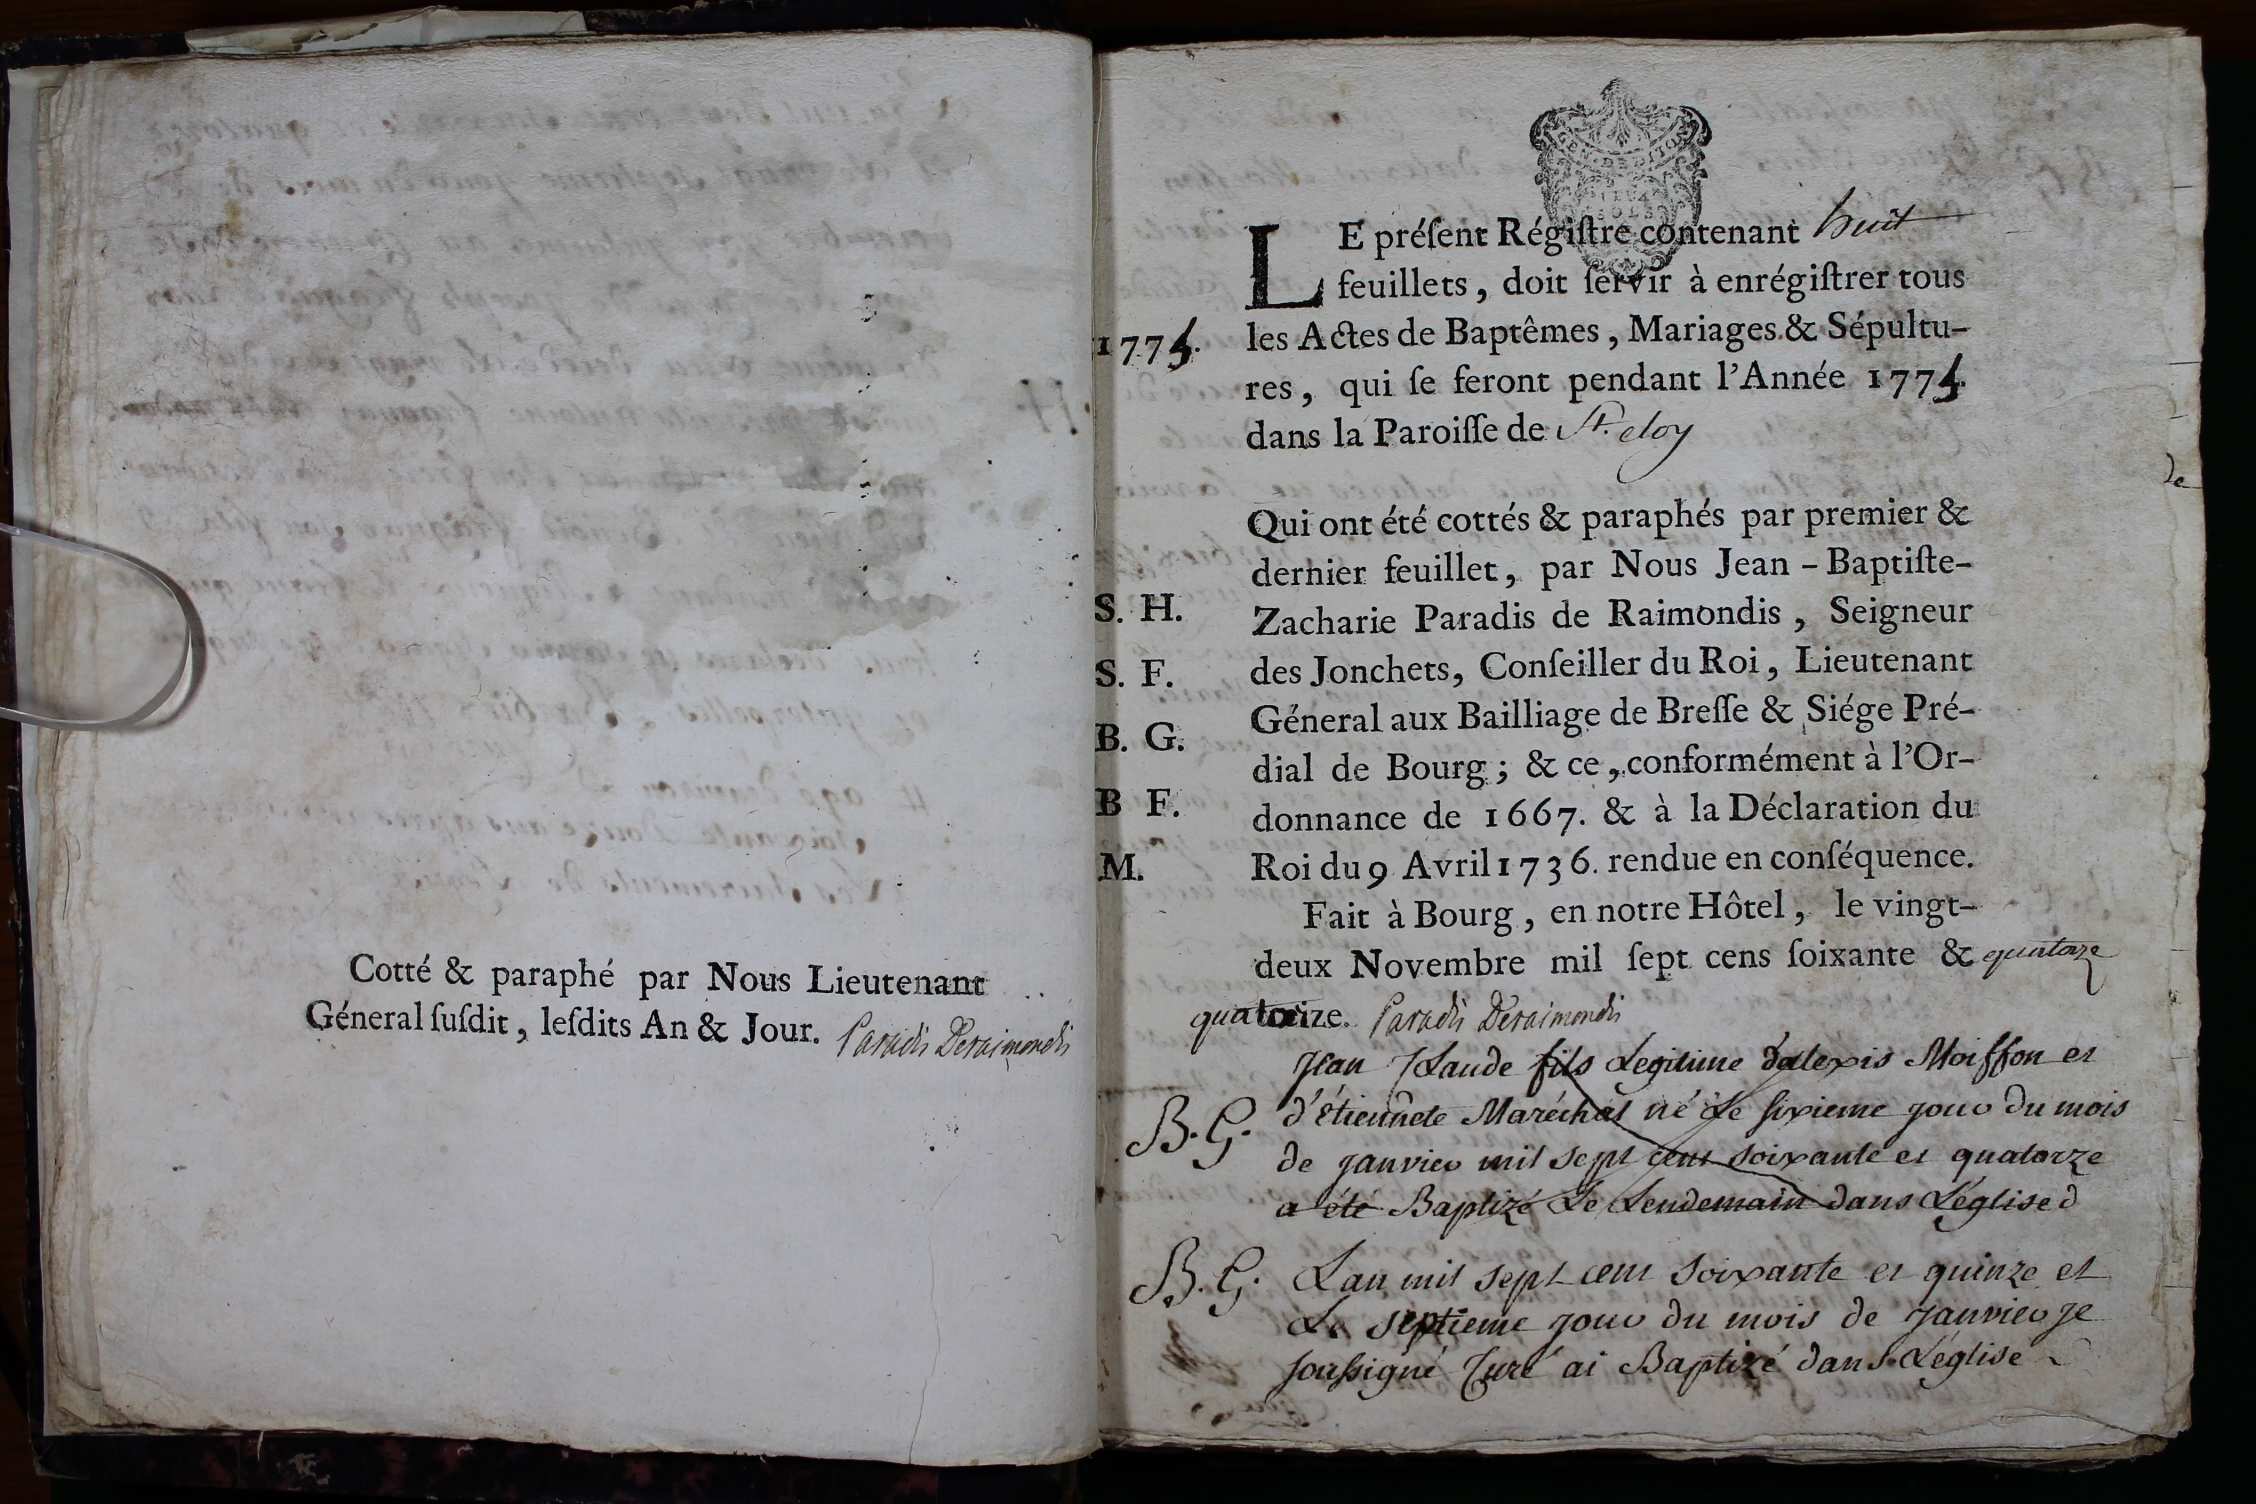 Cotté & paraphé par Nous Lieutenant
Géneral ſuſdit, leſdits An & Jour. Paradis Deraimondis
GEN. DE DIJON
LE préſent Régiſtre contenant huit
feuillets, doit ſervir à enrégiſtrer tous
1775. les Actes de Baptêmes, Mariages & Sépultu-
res, qui ſe feront pendant l'Année 1775.
dans la Paroiſſe de St. eloy
de
Qui ont été cottés & paraphés par premier &
dernier feuillet, par Nous Jean-Baptiſte-
S. H. Zacharie Paradis de Raimondis, Seigneur
S. F. des Jonchets, Conſeiller du Roi, Lieutenant
B. G. Géneral aux Bailliage de Breſſe & Siége Pré-
dial de Bourg; & ce, conformément à l'Or-
B F. donnance de 1667. & à la Déclaration du
M. Roi du 9 Avril 1736. rendue en conſéquence.
Fait à Bourg, en notre Hôtel, le vingt-
deux Novembre mil ſept cens ſoixante & quatorze
quatorze. Paradis Deraimondis
Jean Claude fils Legitime dalexis Moiffon et
B. G. d'étiennete Maréchal né Le sixieme jour du mois
de janvier mil sept cent soixante et quatorze
a été Baptizé Le Lendemain dans L'église d
B. G. Lan mil sept cent soixante et quinze et
Le septieme jour du mois de janvier je
soussigné Curé ai Baptizé dans L'église